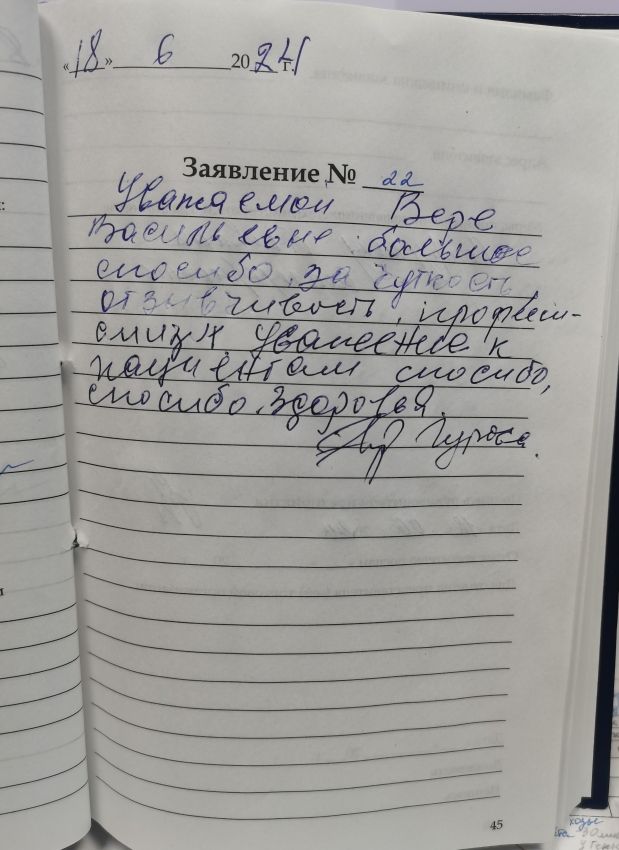 «18» 6 2024 г.
Заявление № 22
Уважаемой Вере
Васильевне большое
спасибо за чуткость,
отзывчивость, професи-
онализм, уважение к
пациентам спасибо,
спасибо. Здоровья.
45